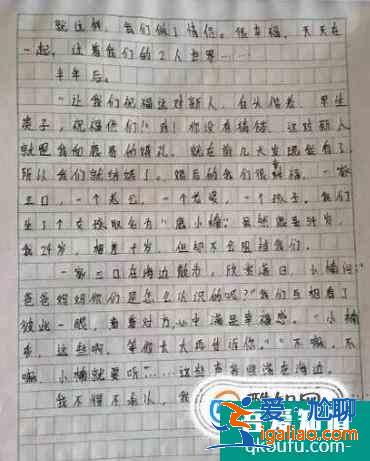 就这样，我们做了情侣。很幸福，天天在
一起，过着我们的2人世界……
半年后。
"让我们祝福这对新人，白头偕老，早生
贵子，祝福他们！"咳！你没有猜错，这对新人
就是我和鹿晗的婚礼，就在前几天发现怀有了，
所以我们就结婚了。婚后的我们很幸福，一家
三口，一个老公，一个老婆，一个孩子，我们
生了个女孩取名为"鹿小楠"虽然鹿晗34岁，
我24岁，相差十岁，但却不会阻碍我们。
一家三口在海边散步，欣赏海日，小楠问：
"爸爸妈妈你们是怎么认识的呢？"我们互相看了
彼此一眼，看着对方，心中满是幸福感。"小楠
乖，这些啊，等你长大再告诉你。""不嘛，不
嘛，小楠就要听"……这些声音回荡在海边。
我不得不承认，我
尴尬聊
qk5u.com